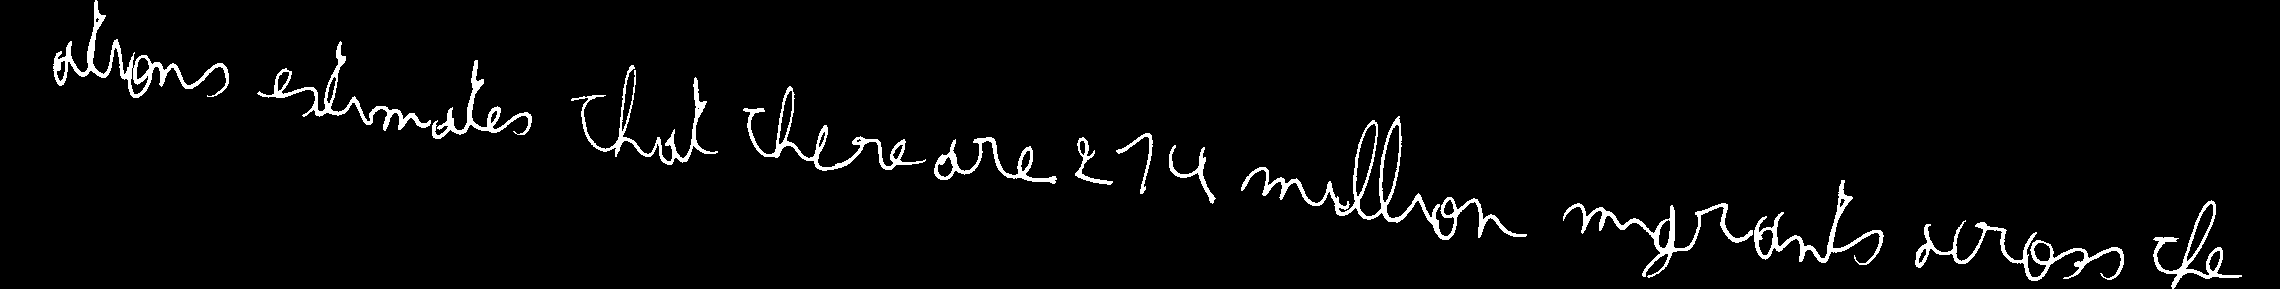 ations estimates that there are 214 million migrants across the